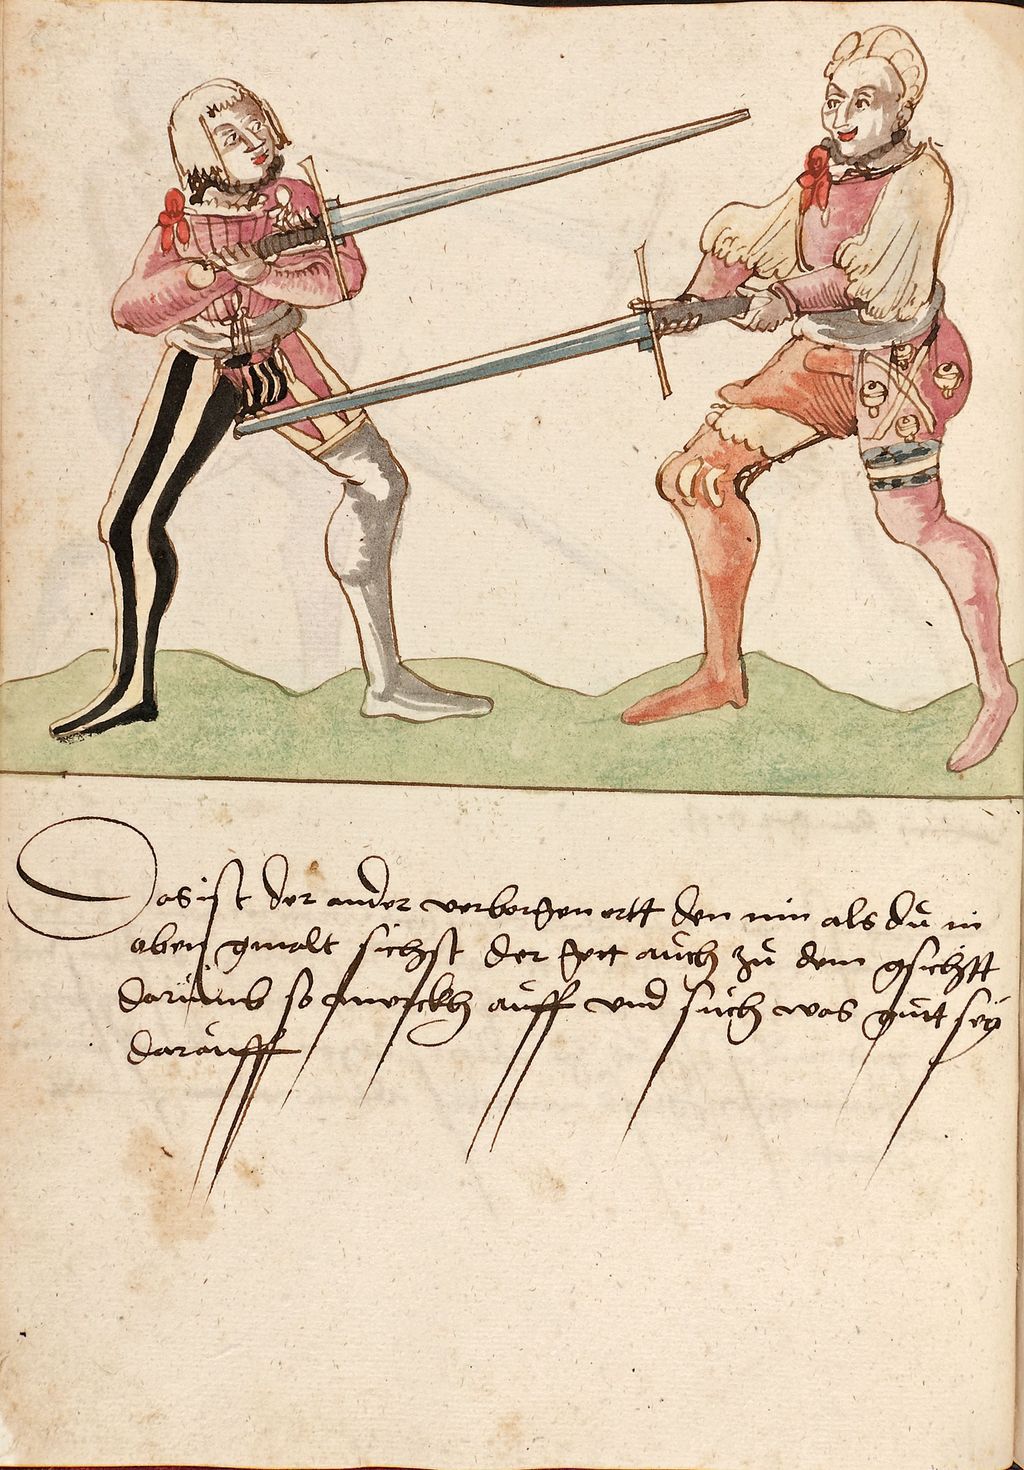 Das ist der ander verborgen ortt den nim als dü in
oben gmalt sichst der gett aüch zü dem gsichtt
darümb so merckh aüff vnd süch was gütt seÿ
daraüff